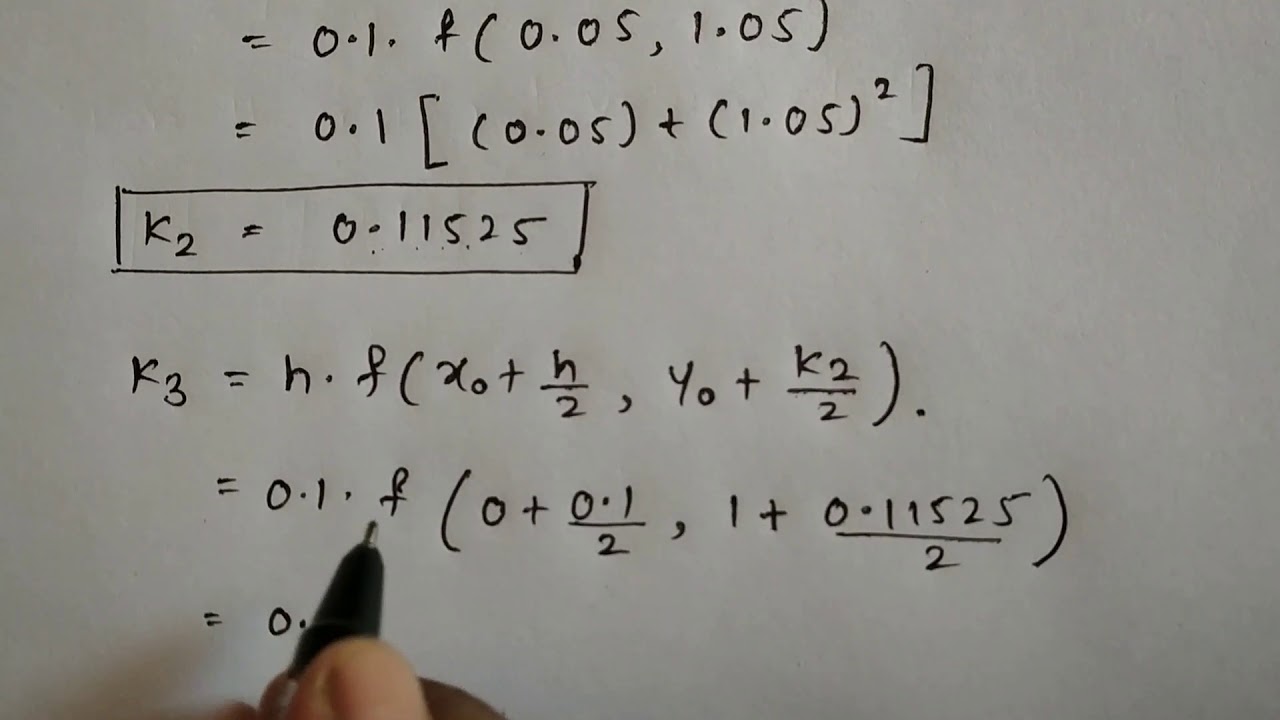 = 0.1. f(0.05, 1.05)
= 0.1 [(0.05) + (1.05)²]
K₂ = 0.11525
K₃ = h. f(x₀ + h/2, y₀ + K₂/2).
= 0.1. f (0 + 0.1/2, 1 + 0.11525/2)
= 0.